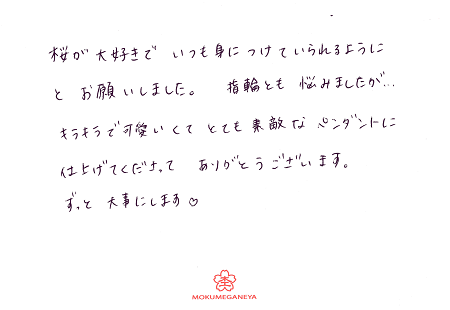 桜が大好きで いつも身につけていられるように
と お願いしました。 指輪とも 悩みましたが…
キラキラで可愛いくて とても 素敵な ペンダントに
仕上げてくださって ありがとうございます。
ずっと 大事にします♡
MOKUMEGANEYA